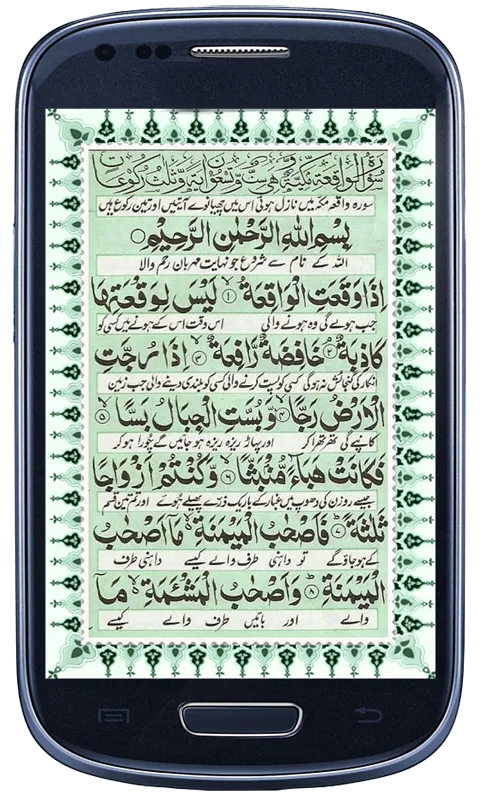 سُوْرَةُ الْوَاقِعَةِ مَكِّيَّةٌ وَّهِيَ سِتٌّ وَّتِسْعُوْنَ اٰيَةً وَّثَلٰثُ رُكُوْعَاتٍ
سورہ واقعہ مکہ میں نازل ہوئی اس میں چھیانوے آیتیں اور تین رکوع ہیں
بِسْمِ اللّٰهِ الرَّحْمٰنِ الرَّحِيْمِ
اللہ کے نام سے شروع جو نہایت مہربان رحم والا
اِذَا وَقَعَتِ الْوَاقِعَةُ ۙ۱ لَيْسَ لِوَقْعَتِهَا
جب ہولے گی وہ ہونے والی اس وقت اس کے ہونے میں کسی کو
كَاذِبَةٌ ۘ۲ خَافِضَةٌ رَّافِعَةٌ ۙ۳ اِذَا رُجَّتِ
انکار کی گنجائش نہ ہوگی کسی کو پست کرنے والی کسی کو بلندی دینے والی جب زمین
الْاَرْضُ رَجًّا ۙ۴ وَّبُسَّتِ الْجِبَالُ بَسًّا ۙ۵
کانپے گی تھرتھرا کر اور پہاڑ ریزہ ریزہ ہو جائیں گے چُورا ہو کر
فَكَانَتْ هَبَآءً مُّنْۢبَثًّا ۙ۶ وَّكُنْتُمْ اَزْوَاجًا
جیسے روزن کی دھوپ میں غبار کے باریک ذرّے پھیلے ہُوئے اور تم تین قسم
ثَلٰثَةً ؕ۷ فَاَصْحٰبُ الْمَيْمَنَةِ ۙ مَاۤ اَصْحٰبُ
کے ہو جاؤ گے تو داہنی طرف والے کیسے داہنی طرف
الْمَيْمَنَةِ ؕ۸ وَاَصْحٰبُ الْمَشْـَٔمَةِ ۙ مَاۤ
والے اور بائیں طرف والے کیسے